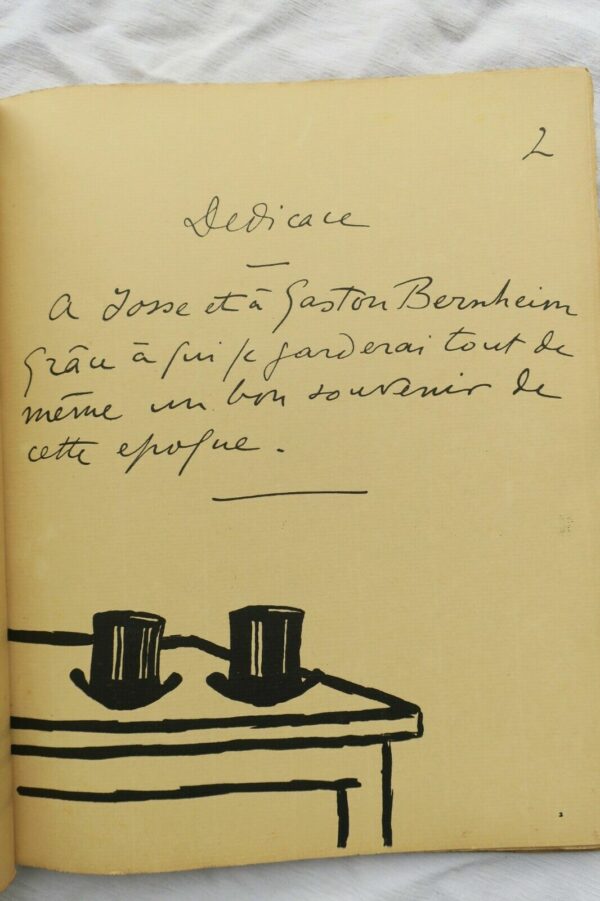 2
Dedicace
A Josse et à Gaston Bernheim
Grâce à qui je garderai tout de
même un bon souvenir de
cette epoque.
3